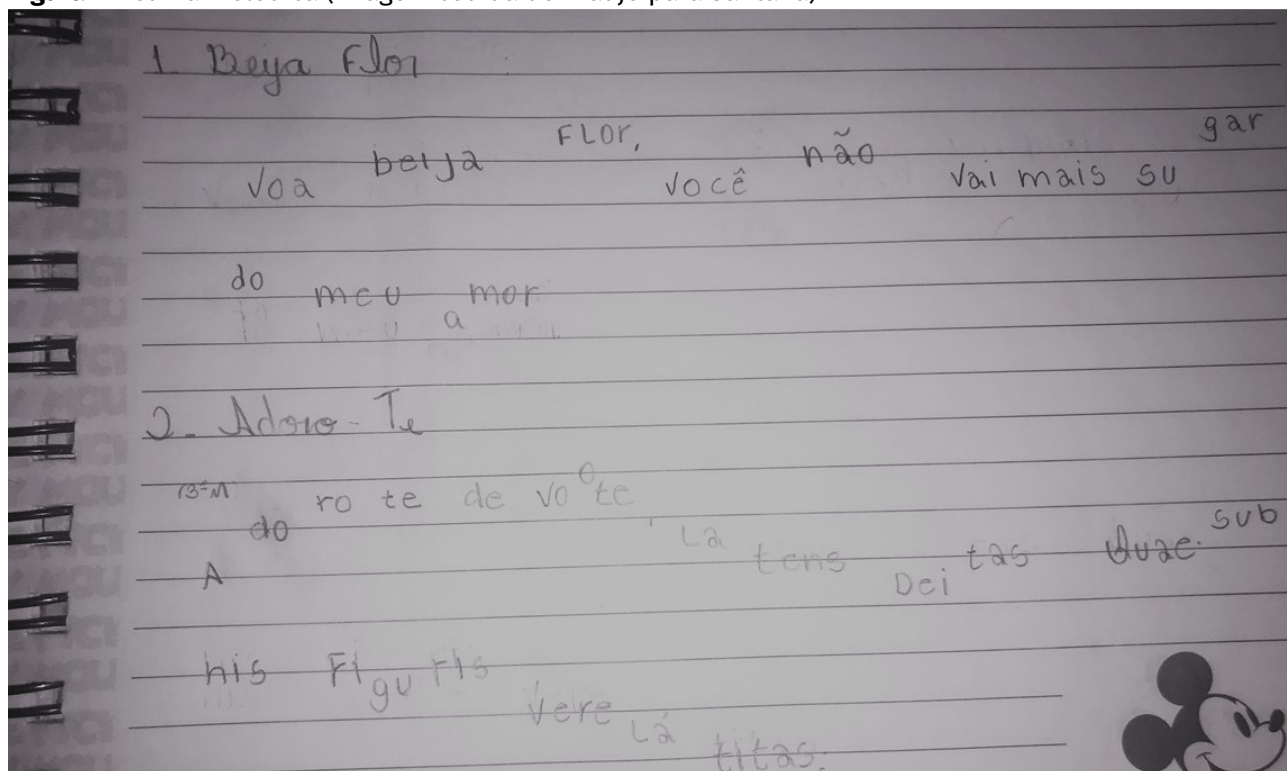 1 Beija Flor
Voa beija FLOr, você não vai mais su gar
do meu a mor
2- Adoro-Te
A do ro te de vo te, La tens Dei tas Quae sub
his Fi gu ris Vere Lá titas.